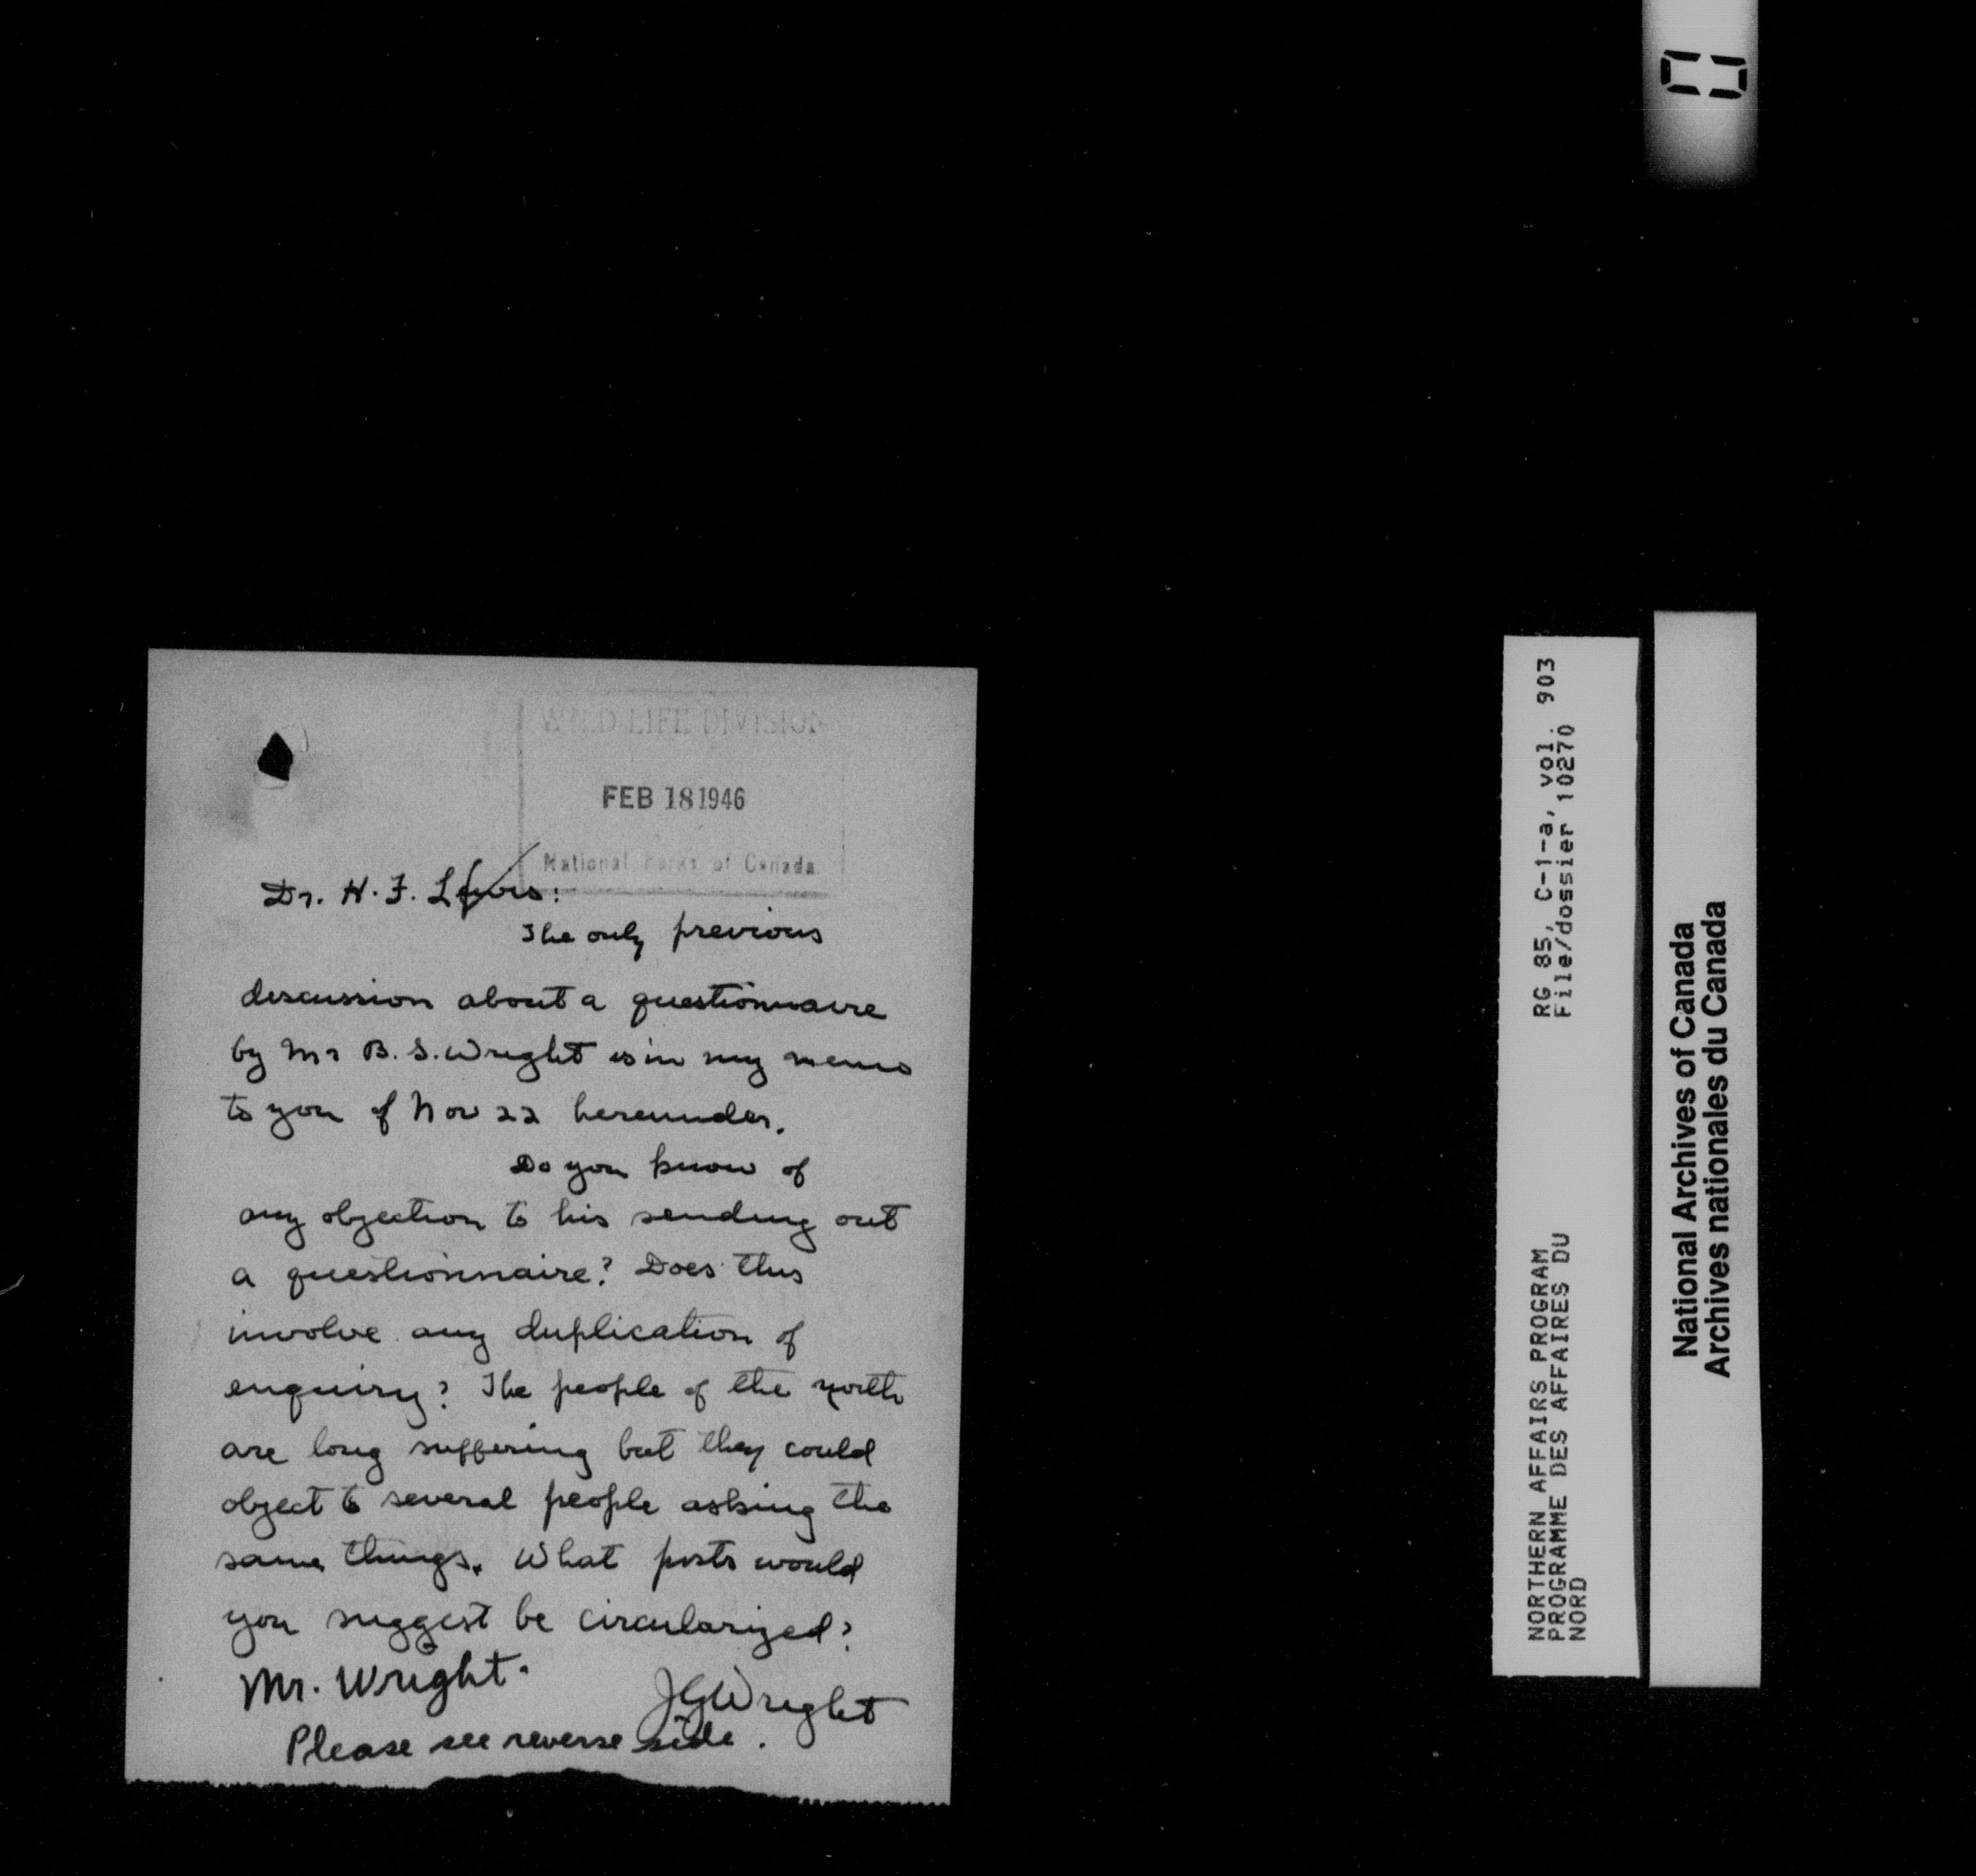 WILD LIFE DIVISION
FEB 18 1946
National Parks of Canada
Dr. H. F. Lewis:
The only previous
discussion about a questionnaire
by Mr B. S. Wright is in my memo
to you of Nov 22 hereunder.
Do you know of
any objection to his sending out
a questionnaire? Does this
involve any duplication of
enquiry? The people of the north
are long suffering but they could
object to several people asking the
same things. What posts would
you suggest be circularized?
Mr. Wright.
JGWright
Please see reverse side.
RG 85, C-1-a, vol. 903
File/dossier 10270
NORTHERN AFFAIRS PROGRAM
PROGRAMME DES AFFAIRES DU
NORD
National Archives of Canada
Archives nationales du Canada